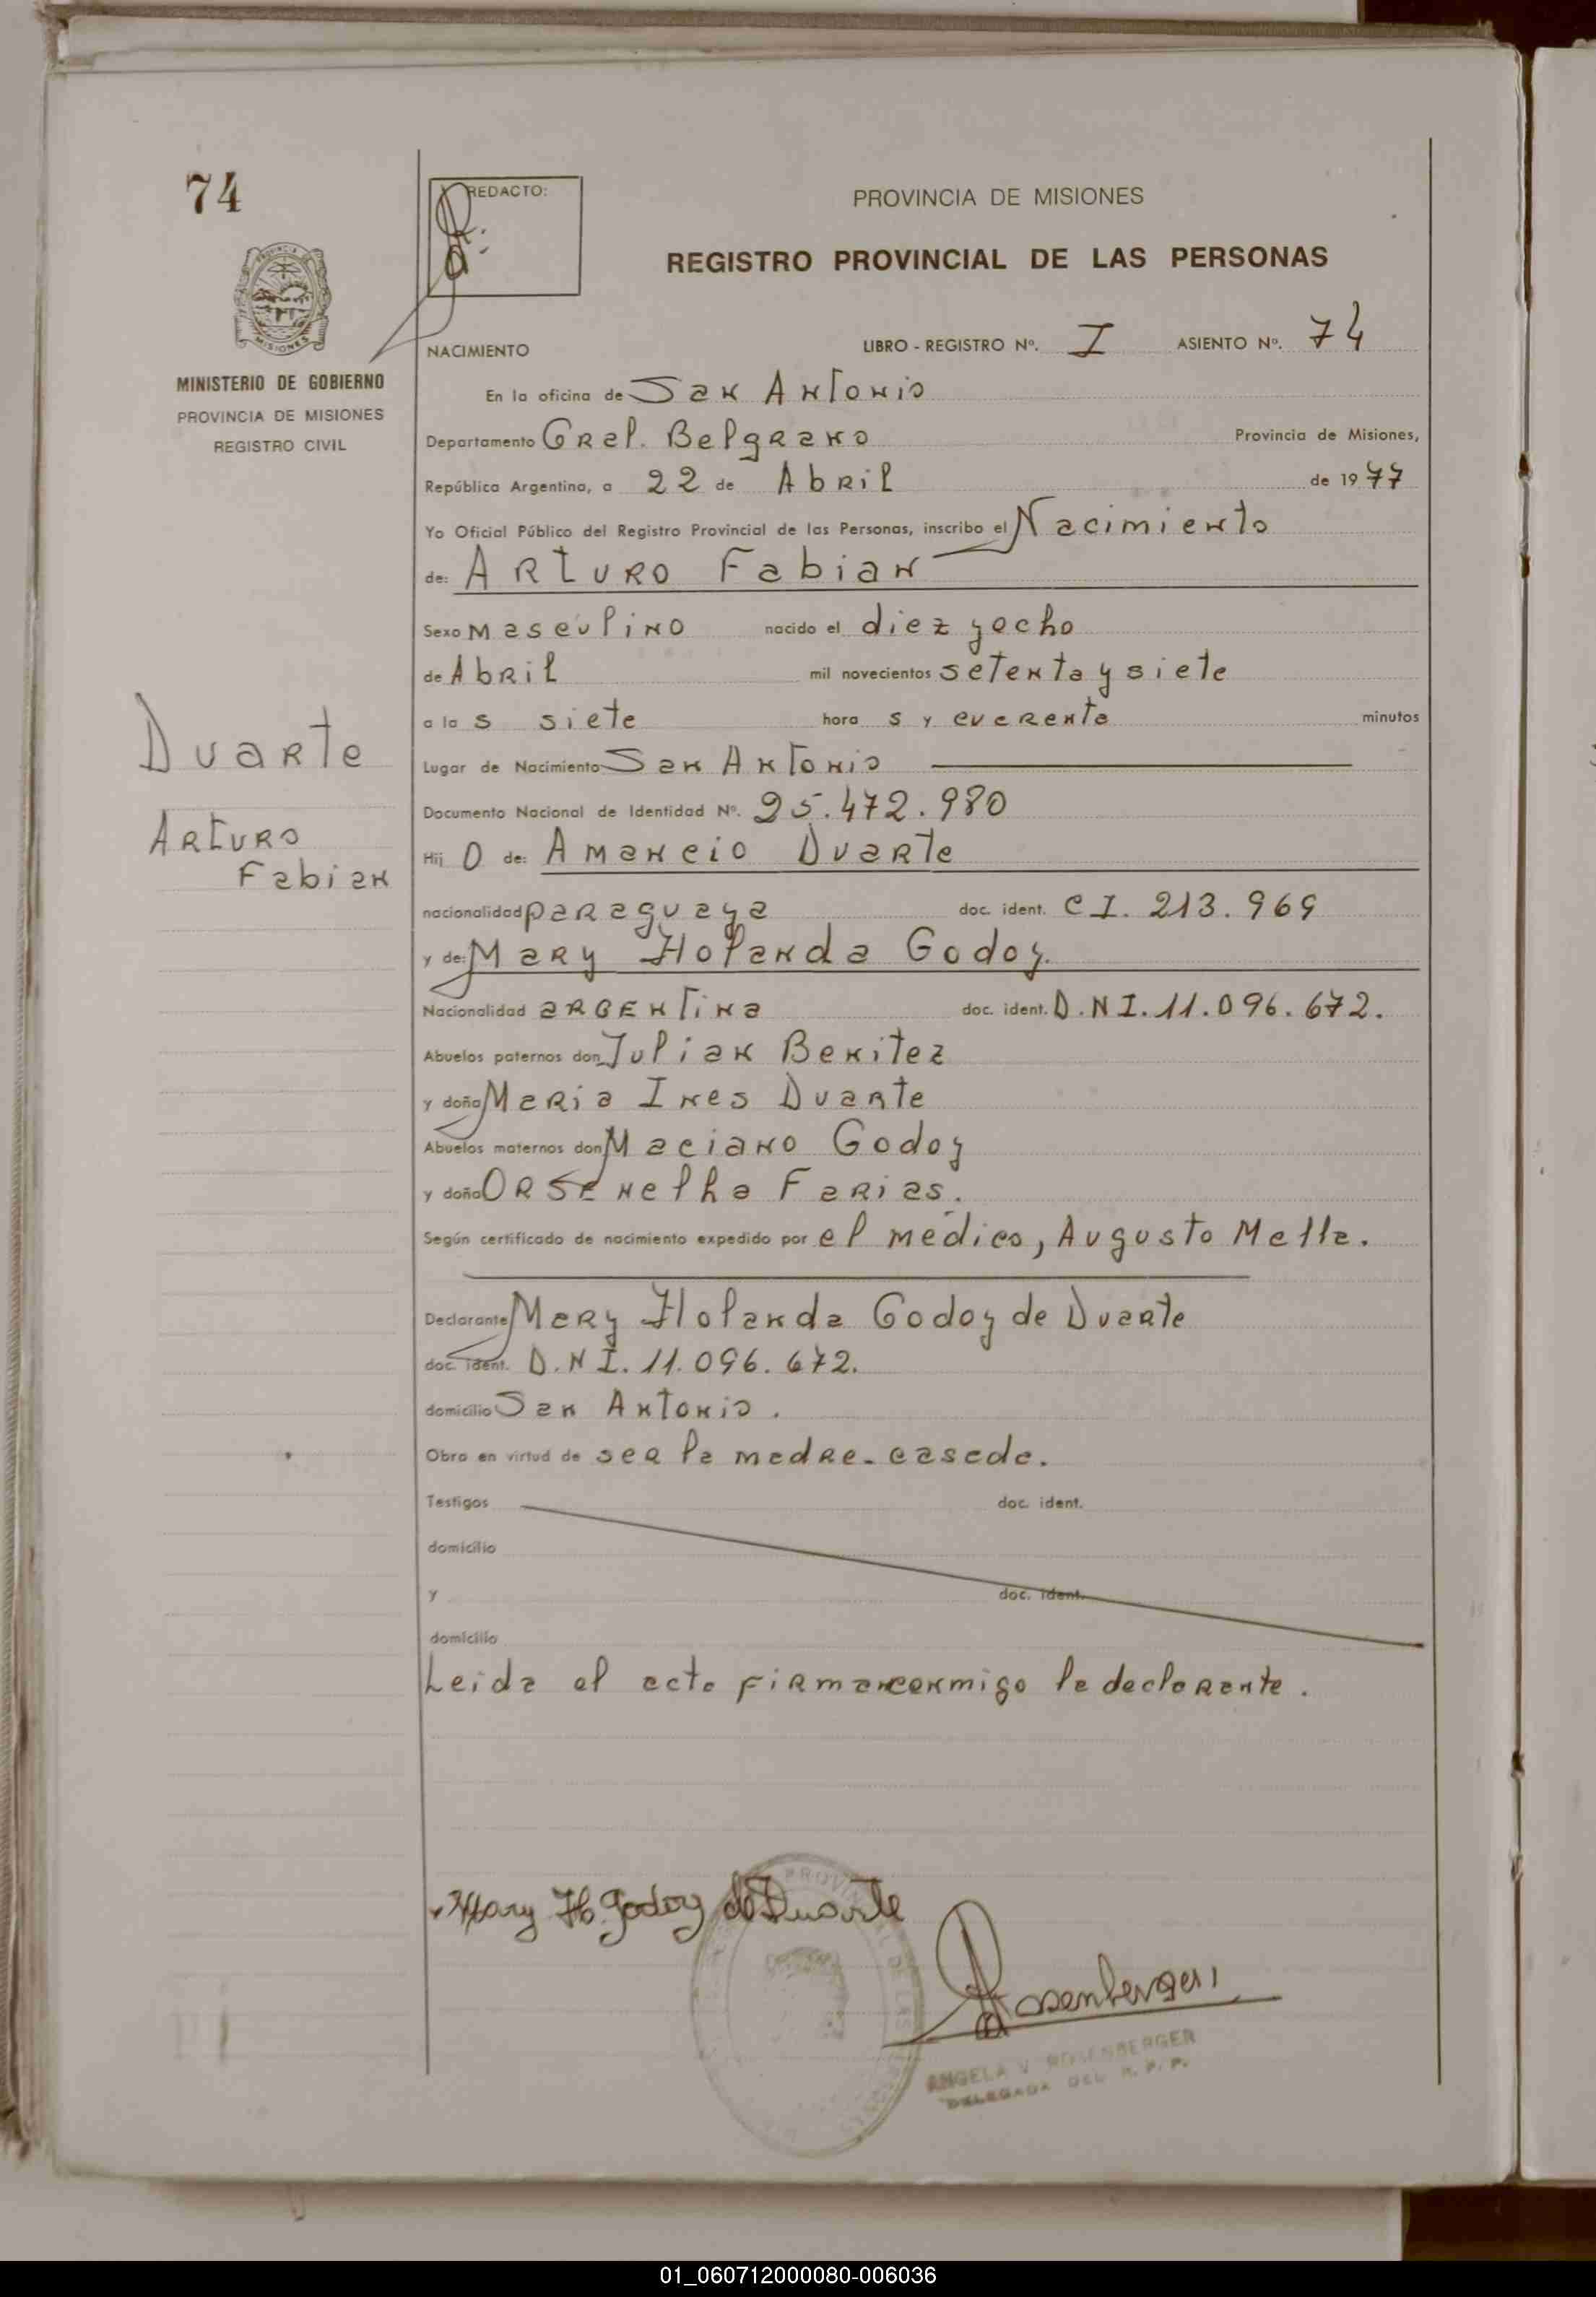 74
REDACTO:
PROVINCIA DE MISIONES
REGISTRO PROVINCIAL DE LAS PERSONAS
NACIMIENTO LIBRO - REGISTRO Nº. I ASIENTO Nº. 74
MISIONES
MINISTERIO DE GOBIERNO
PROVINCIA DE MISIONES
REGISTRO CIVIL
En la oficina de San Antonio
Departamento Gral. Belgrano Provincia de Misiones,
República Argentina, a 22 de Abril de 1977
Yo Oficial Público del Registro Provincial de las Personas, inscribo el Nacimiento
de: Arturo Fabian
Sexo masculino nacido el diez y ocho
de Abril mil novecientos setenta y siete
a la s siete hora s y cuarenta minutos
Duarte
Arturo
Fabian
Lugar de Nacimiento San Antonio
Documento Nacional de Identidad Nº. 25.472.980
Hij o de: Amancio Duarte
nacionalidad paraguaya doc. ident. C I. 213.969
y de: Mary Holanda Godoy.
Nacionalidad argentina doc. ident. D.N I. 11.096.672.
Abuelos paternos don Julian Benitez
y doña Maria Ines Duarte
Abuelos maternos don Maciano Godoy
y doña Orsenelha Farias.
Según certificado de nacimiento expedido por el médico, Augusto Mella.
Declarante Mary Holanda Godoy de Duarte
doc. ident. D.N I. 11.096.672.
domicilio San Antonio.
Obra en virtud de ser la madre - casada.
Testigos doc. ident.
domicilio
y doc. ident.
domicilio
Leida el acta firma conmigo la declarante.
Mary H. Godoy de Duarte
Rosenberger
ANGELA V. ROSENBERGER
DELEGADA DEL R. P. P.
01_060712000080-006036